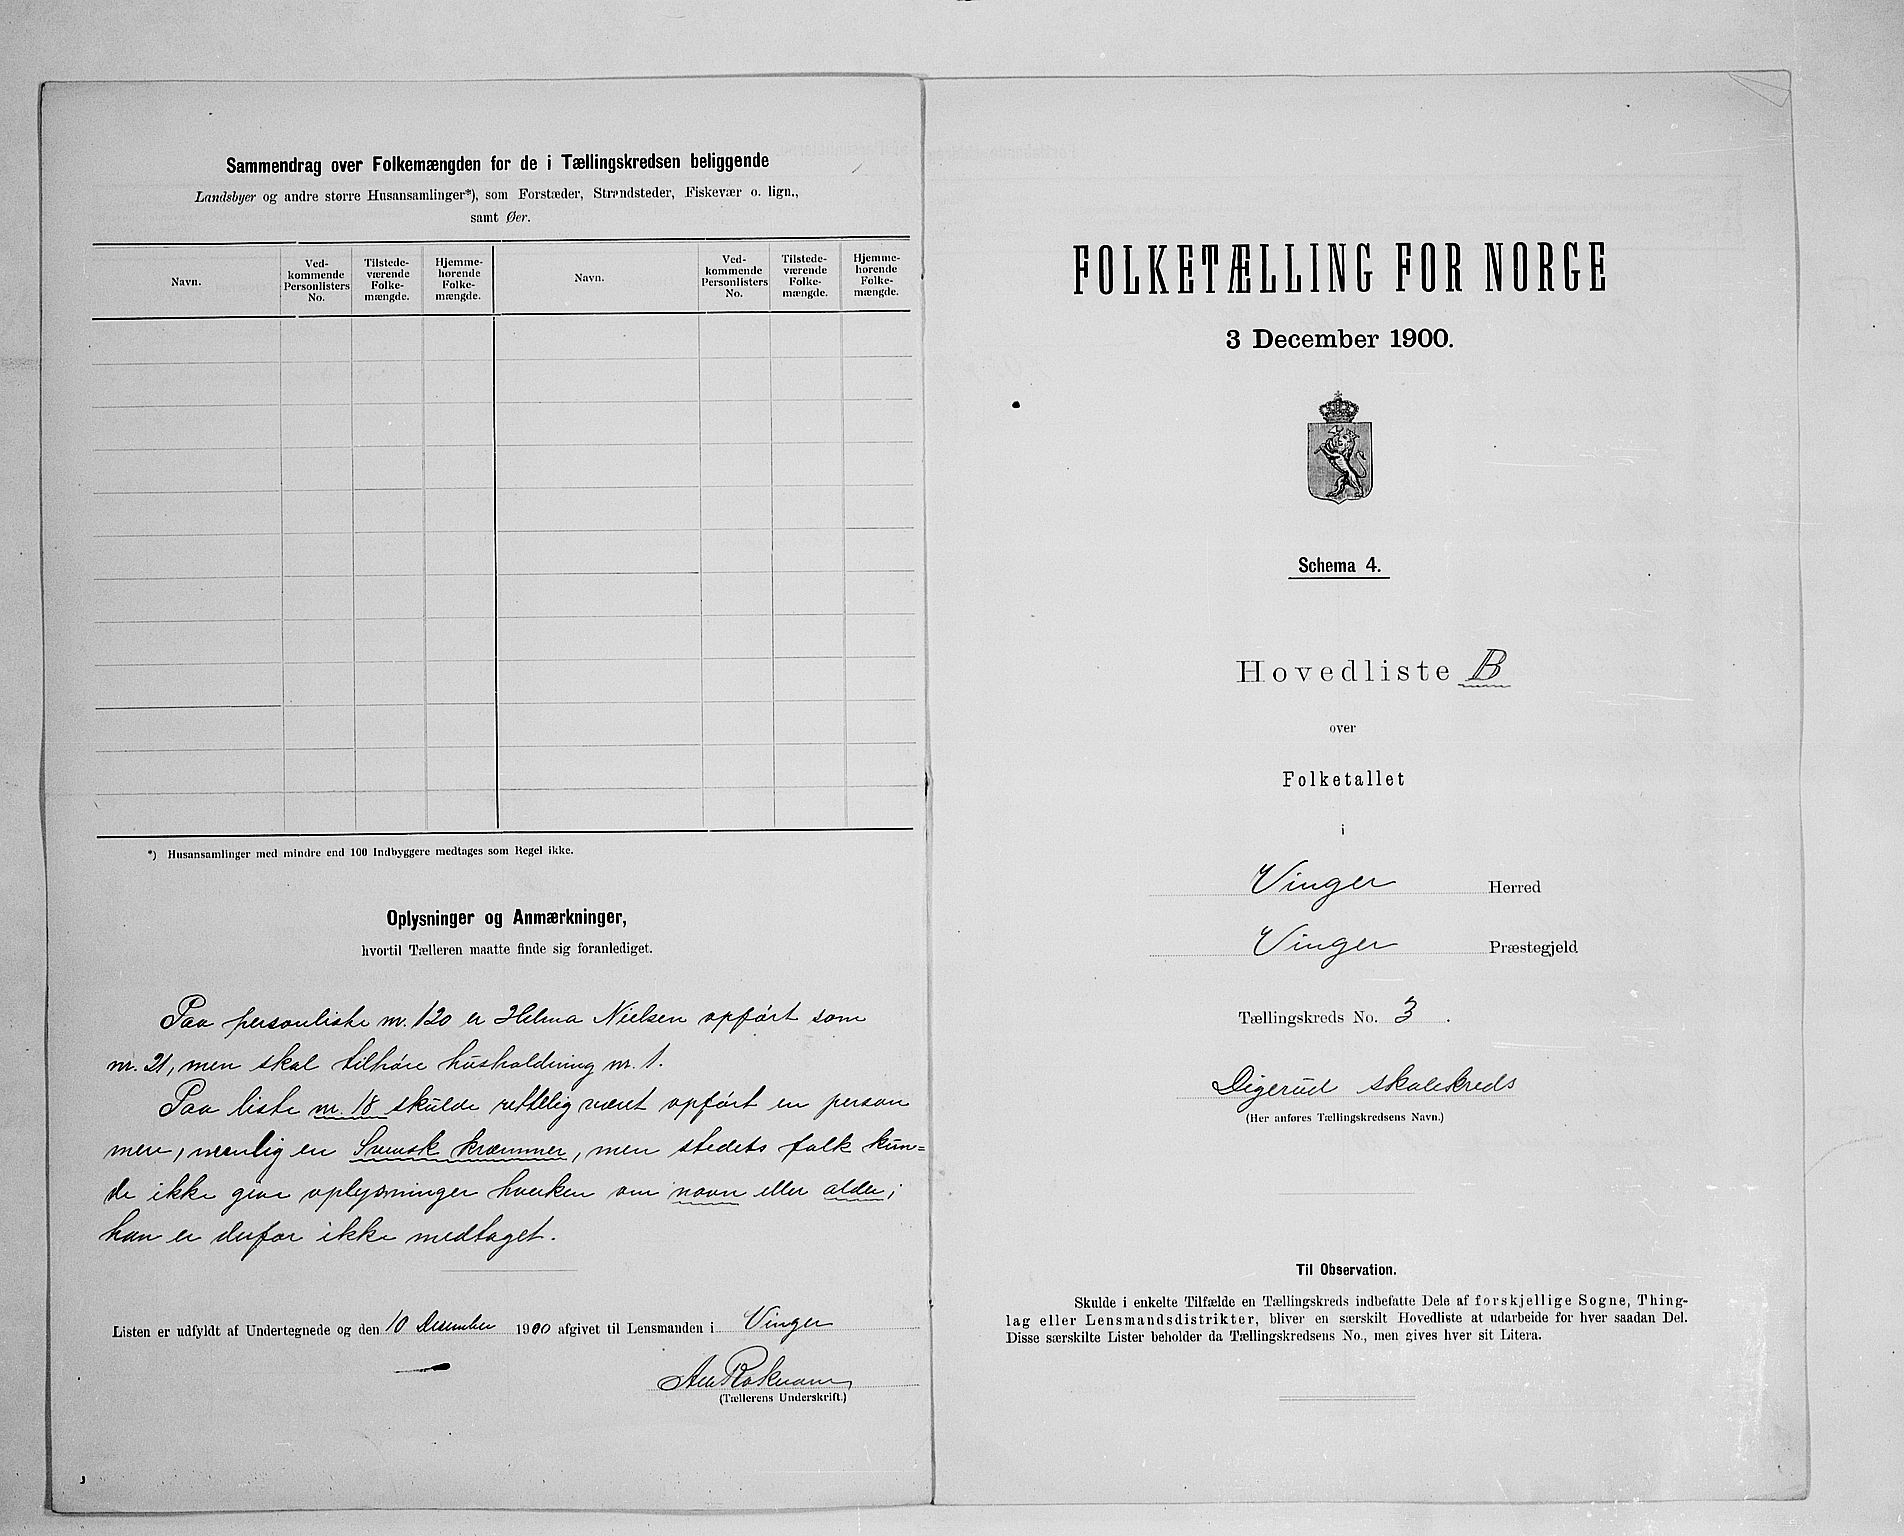 Sammendrag over Folkemængden for de i Tællingskredsen beliggende
Landsbyer og andre større Husansamlinger*), som Forstæder, Strandsteder, Fiskevær o. lign.,
samt Øer.
Navn.
Ved-
kommende
Personlisters
No.
Tilstede-
værende
Folke-
mængde.
Hjemme-
hørende
Folke-
mængde.
Navn.
Ved-
kommende
Personlisters
No.
Tilstede-
værende
Folke-
mængde.
Hjemme-
hørende
Folke-
mængde.
*) Husansamlinger med mindre end 100 Indbyggere medtages som Regel ikke.
Oplysninger og Anmærkninger,
hvortil Tælleren maatte finde sig foranlediget.
Paa personliste nr. 120 er Helma Nielsen opført som
nr. 21, men skal tilhøre husholdning nr. 1.
Paa liste nr. 18 skulde rettelig været opført en person
mere, nemlig en Svensk kræmmer, men stedets folk kun=
de ikke give oplysninger hverken om navn eller alder;
han er derfor ikke medtaget.
Listen er udfyldt af Undertegnede og den 10 Desember 1900 afgivet til Lensmanden i Vinger
(Tællerens Underskrift.)
FOLKETÆLLING FOR NORGE
3 December 1900.
Schema 4.
Hovedliste B
over
Folketallet
i
Vinger Herred
Vinger Præstegjeld
Tællingskreds No. 3.
Digerud skolekreds
(Her anføres Tællingskredsens Navn.)
Til Observation.
Skulde i enkelte Tilfælde en Tællingskreds indbefatte Dele af forskjellige Sogne, Thing-
lag eller Lensmandsdistrikter, bliver en særskilt Hovedliste at udarbeide for hver saadan Del.
Disse særskilte Lister beholder da Tællingskredsens No., men gives hver sit Litera.